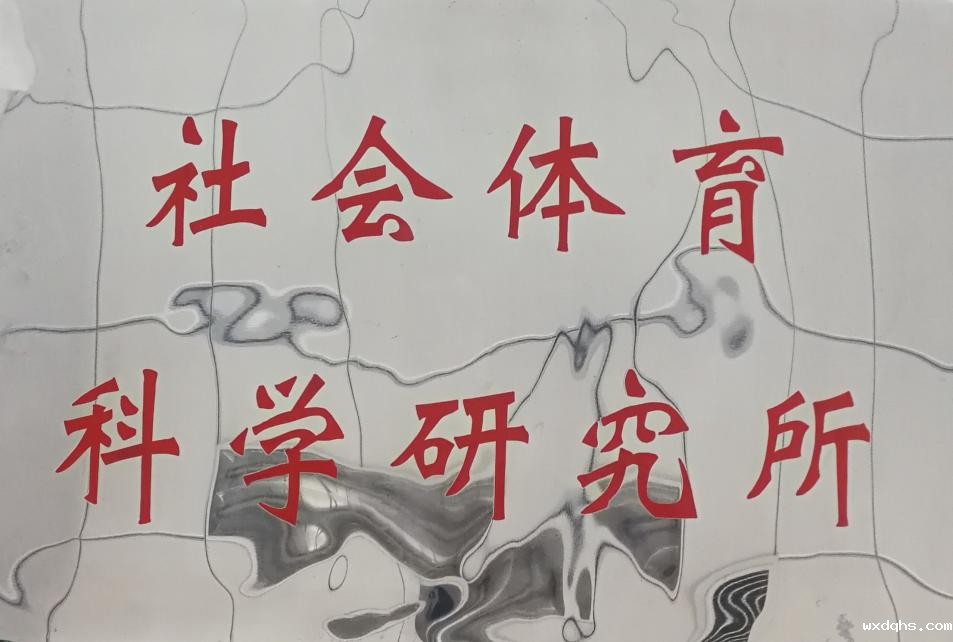 社会体育
科学研究所
wxdqhs.com